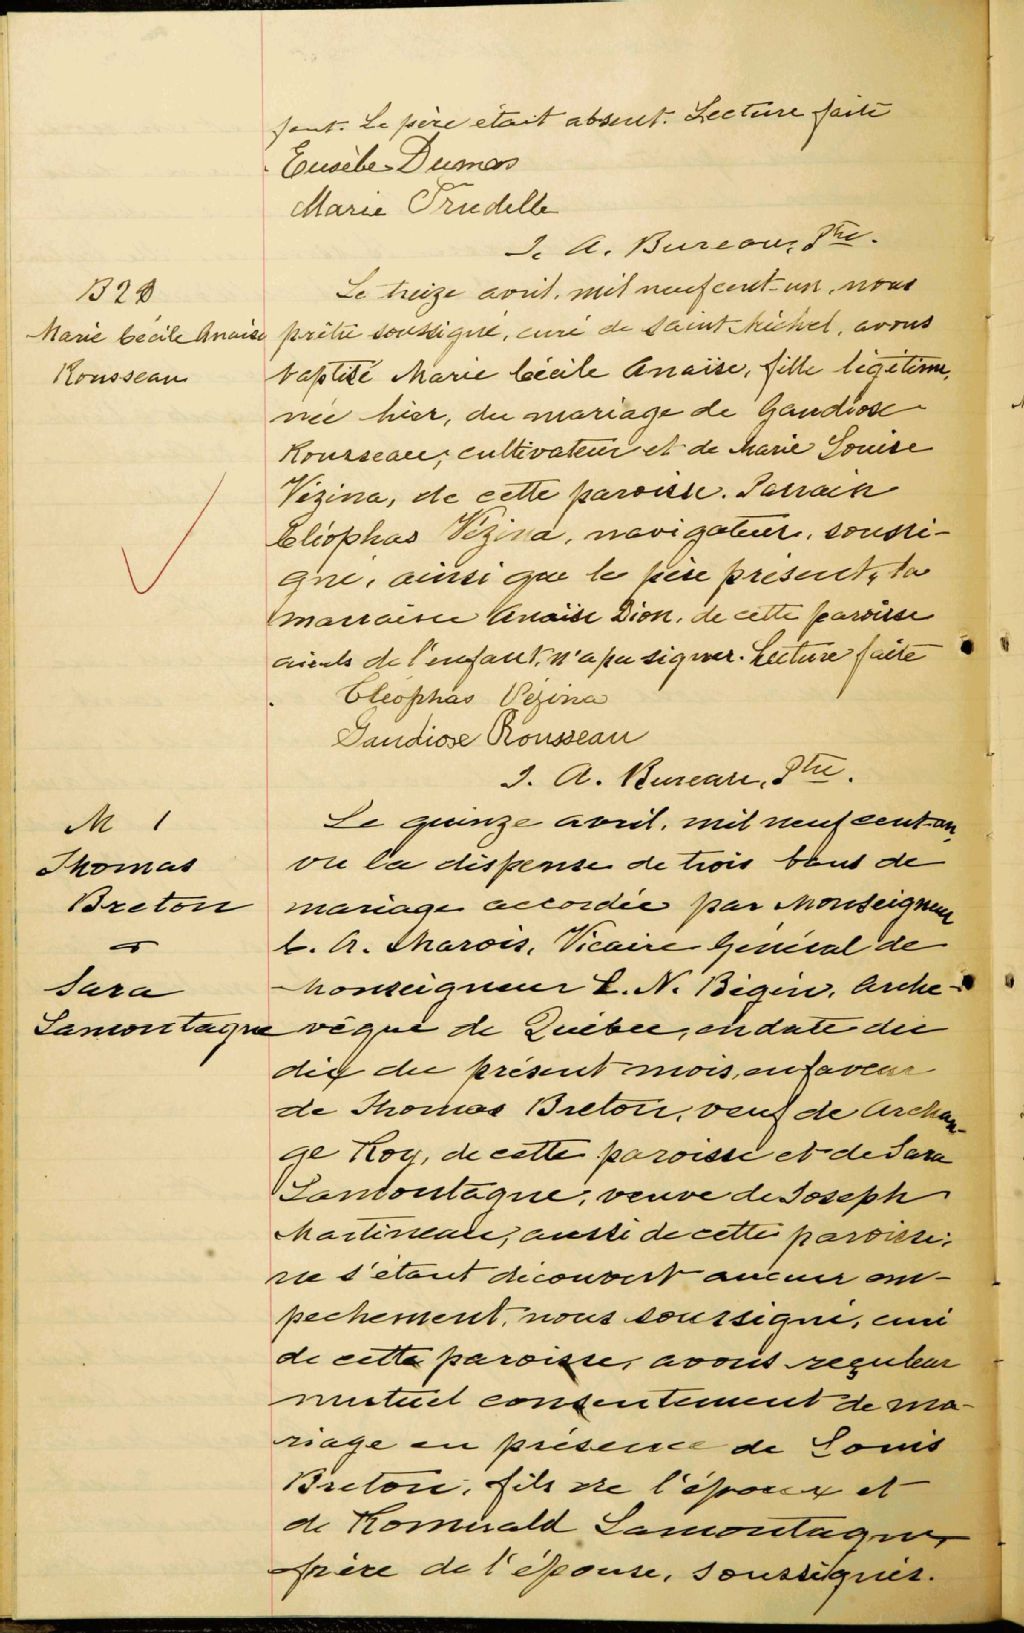 fant. Le père était absent. Lecture faite
Eusèbe Dumas
Marie Trudelle
J. A. Bureau, Ptre.
B 20
Marie Cécile Anaïse
Rousseau
Le treize avril, mil neuf cent-un, nous
prêtre soussigné, curé de Saint Michel, avons
baptisé Marie Cécile Anaïse, fille légitime,
née hier, du mariage de Gaudiose
Rousseau, cultivateur et de Marie Louise
Vézina, de cette paroisse. Parrain
Cléophas Vézina, navigateur, soussi-
gné, ainsi que le père présent, la
marraine Anaïse Dion, de cette paroisse
aieuls de l'enfant, n'a pu signer. Lecture faite
Cléophas Vézina
Gaudiose Rousseau
J. A. Bureau, Ptre.
M 1
Thomas
Breton
&
Sara
Lamontagne
Le quinze avril, mil neuf cent-un,
vu la dispense de trois bans de
mariage accordée par Monseigneur
C. A. Marois, Vicaire Général de
Monseigneur L. N. Bégin, Arche-
vêque de Québec, en date du
dix du présent mois, en faveur
de Thomas Breton, veuf de Archan-
ge Roy, de cette paroisse et de Sara
Lamontagne, veuve de Joseph
Martineau, aussi de cette paroisse;
ne s'étant découvert aucun em-
pechement, nous soussigné, curé
de cette paroisse, avons reçu leur
mutuel consentement de ma-
riage en présence de Louis
Breton, fils de l'époux et
de Romuald Lamontagne,
frère de l'épouse, soussignés.